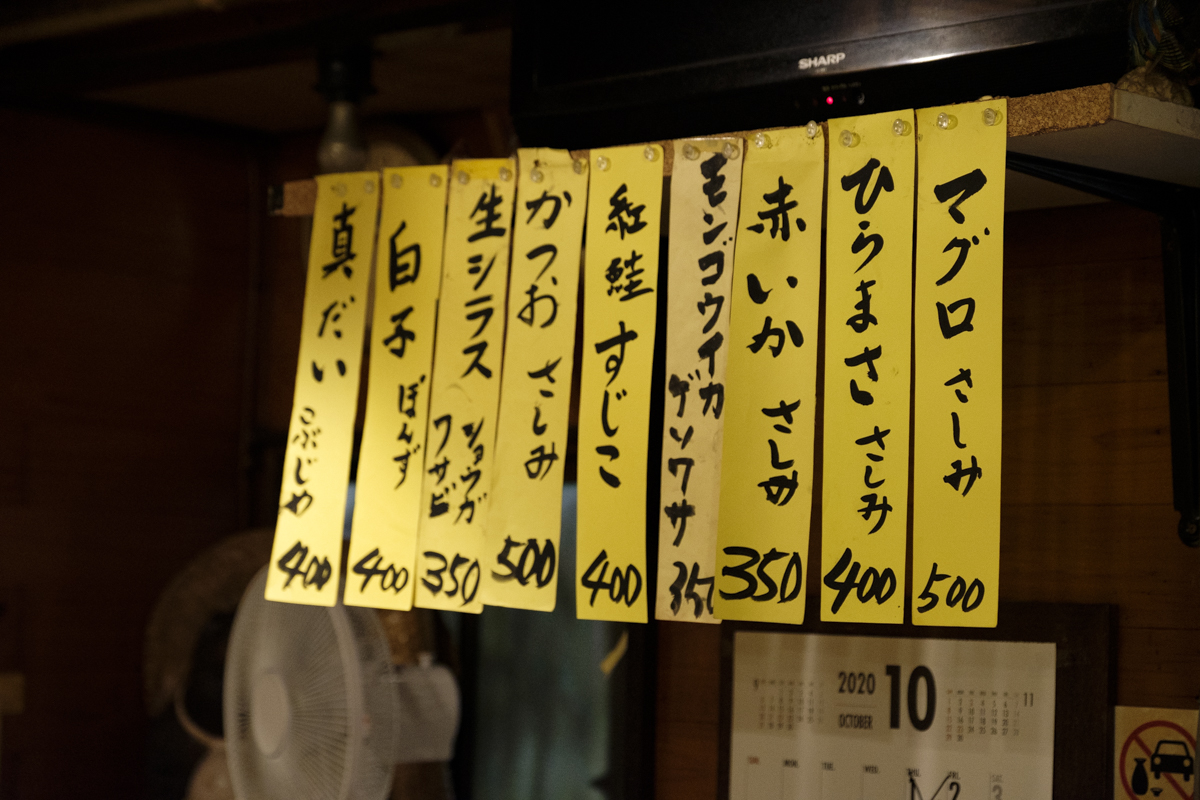 SHARP
マグロ さしみ 500
ひらまさ さしみ 400
赤いか さしみ 350
モンゴウイカ
ゲソワサ 350
紅鮭 すじこ 400
かつお さしみ 500
生シラス ショウガ
ワサビ 350
白子 ぽんず 400
真だい こぶじめ 400
2020
OCTOBER
10
11
SUN. MON. TUE. WED.
FRI. SAT.
2 3